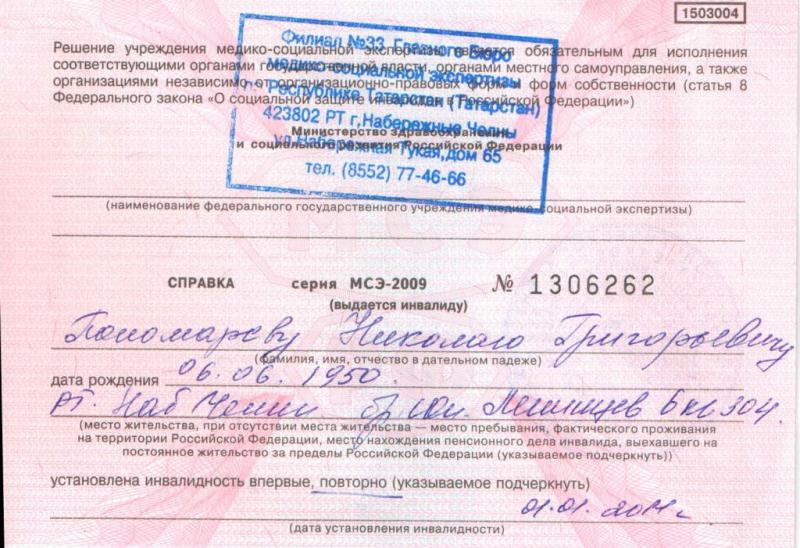 1503004
Филиал №33 Главного бюро
медико-социальной экспертизы
по Республике Татарстан (Татарстан)
423802 РТ г.Набережные Челны
ул.Набережная Тукая,дом 65
тел. (8552) 77-46-66
Решение учреждения медико-социальной экспертизы является обязательным для исполнения
соответствующими органами государственной власти, органами местного самоуправления, а также
организациями независимо от организационно-правовых форм и форм собственности (статья 8
Федерального закона «О социальной защите инвалидов в Российской Федерации»)
Министерство здравоохранения
и социального развития Российской Федерации
(наименование федерального государственного учреждения медико-социальной экспертизы)
МСЭ
СПРАВКА серия МСЭ-2009 № 1306262
(выдается инвалиду)
Пономареву Николаю Григорьевичу
(фамилия, имя, отчество в дательном падеже)
дата рождения 06.06.1950.
РТ. Наб Челны 6 кв 304.
(место жительства, при отсутствии места жительства — место пребывания, фактического проживания
на территории Российской Федерации, место нахождения пенсионного дела инвалида, выехавшего на
постоянное жительство за пределы Российской Федерации (указываемое подчеркнуть))
установлена инвалидность впервые, повторно (указываемое подчеркнуть)
01.01.2011г
(дата установления инвалидности)